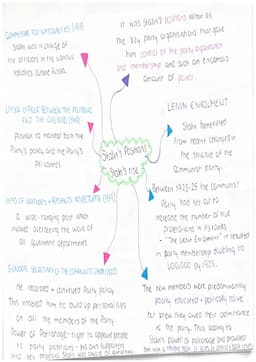 COMMISSAR FOR NATIONALITIES (1917)
Stalin was in charge of
the officials in the various
republics outside Russia.
LIAISON OFFICER BETWEEN THE POLITBURO
AND THE ORGBURO (1919)
Position to monitor both the
Party's policy and the Party's
Personnel.
HEAD OF WORKERS + PEASANTS INSPECTORATE (1919)
A wide-ranging post which
involved overseeing the work of
all government departments.
GENERAL SECRETARY OF THE COMMUNIST PARTY (1922)
He recorded + conveyed Party Policy
This enabled him to build up personal files
on all the members of the Party
Power of Patronage - right to appoint people
to party positions - his own supporters
Stalin's Positions
Stalin's rise
It was Stalin's positions within all
the key party organisations that gave
him control of the party organisation
and membership and such an enormous
amount of power.
LENIN ENROLMENT
Stalin benefited
from recent changes in
the structure of the
Communist party.
Between 1923-25 the Communist
Party had set out to
increase the number of true
proletarians in its ranks
• "The Lenin Enrolment" - resulted
in party membership doubling to
1,000,000 by 1925.
The new members were predominantly
poorly educated + politically naive
but knew they owed their admittance
to the party. This added to
Stalin's power of patronage and provided